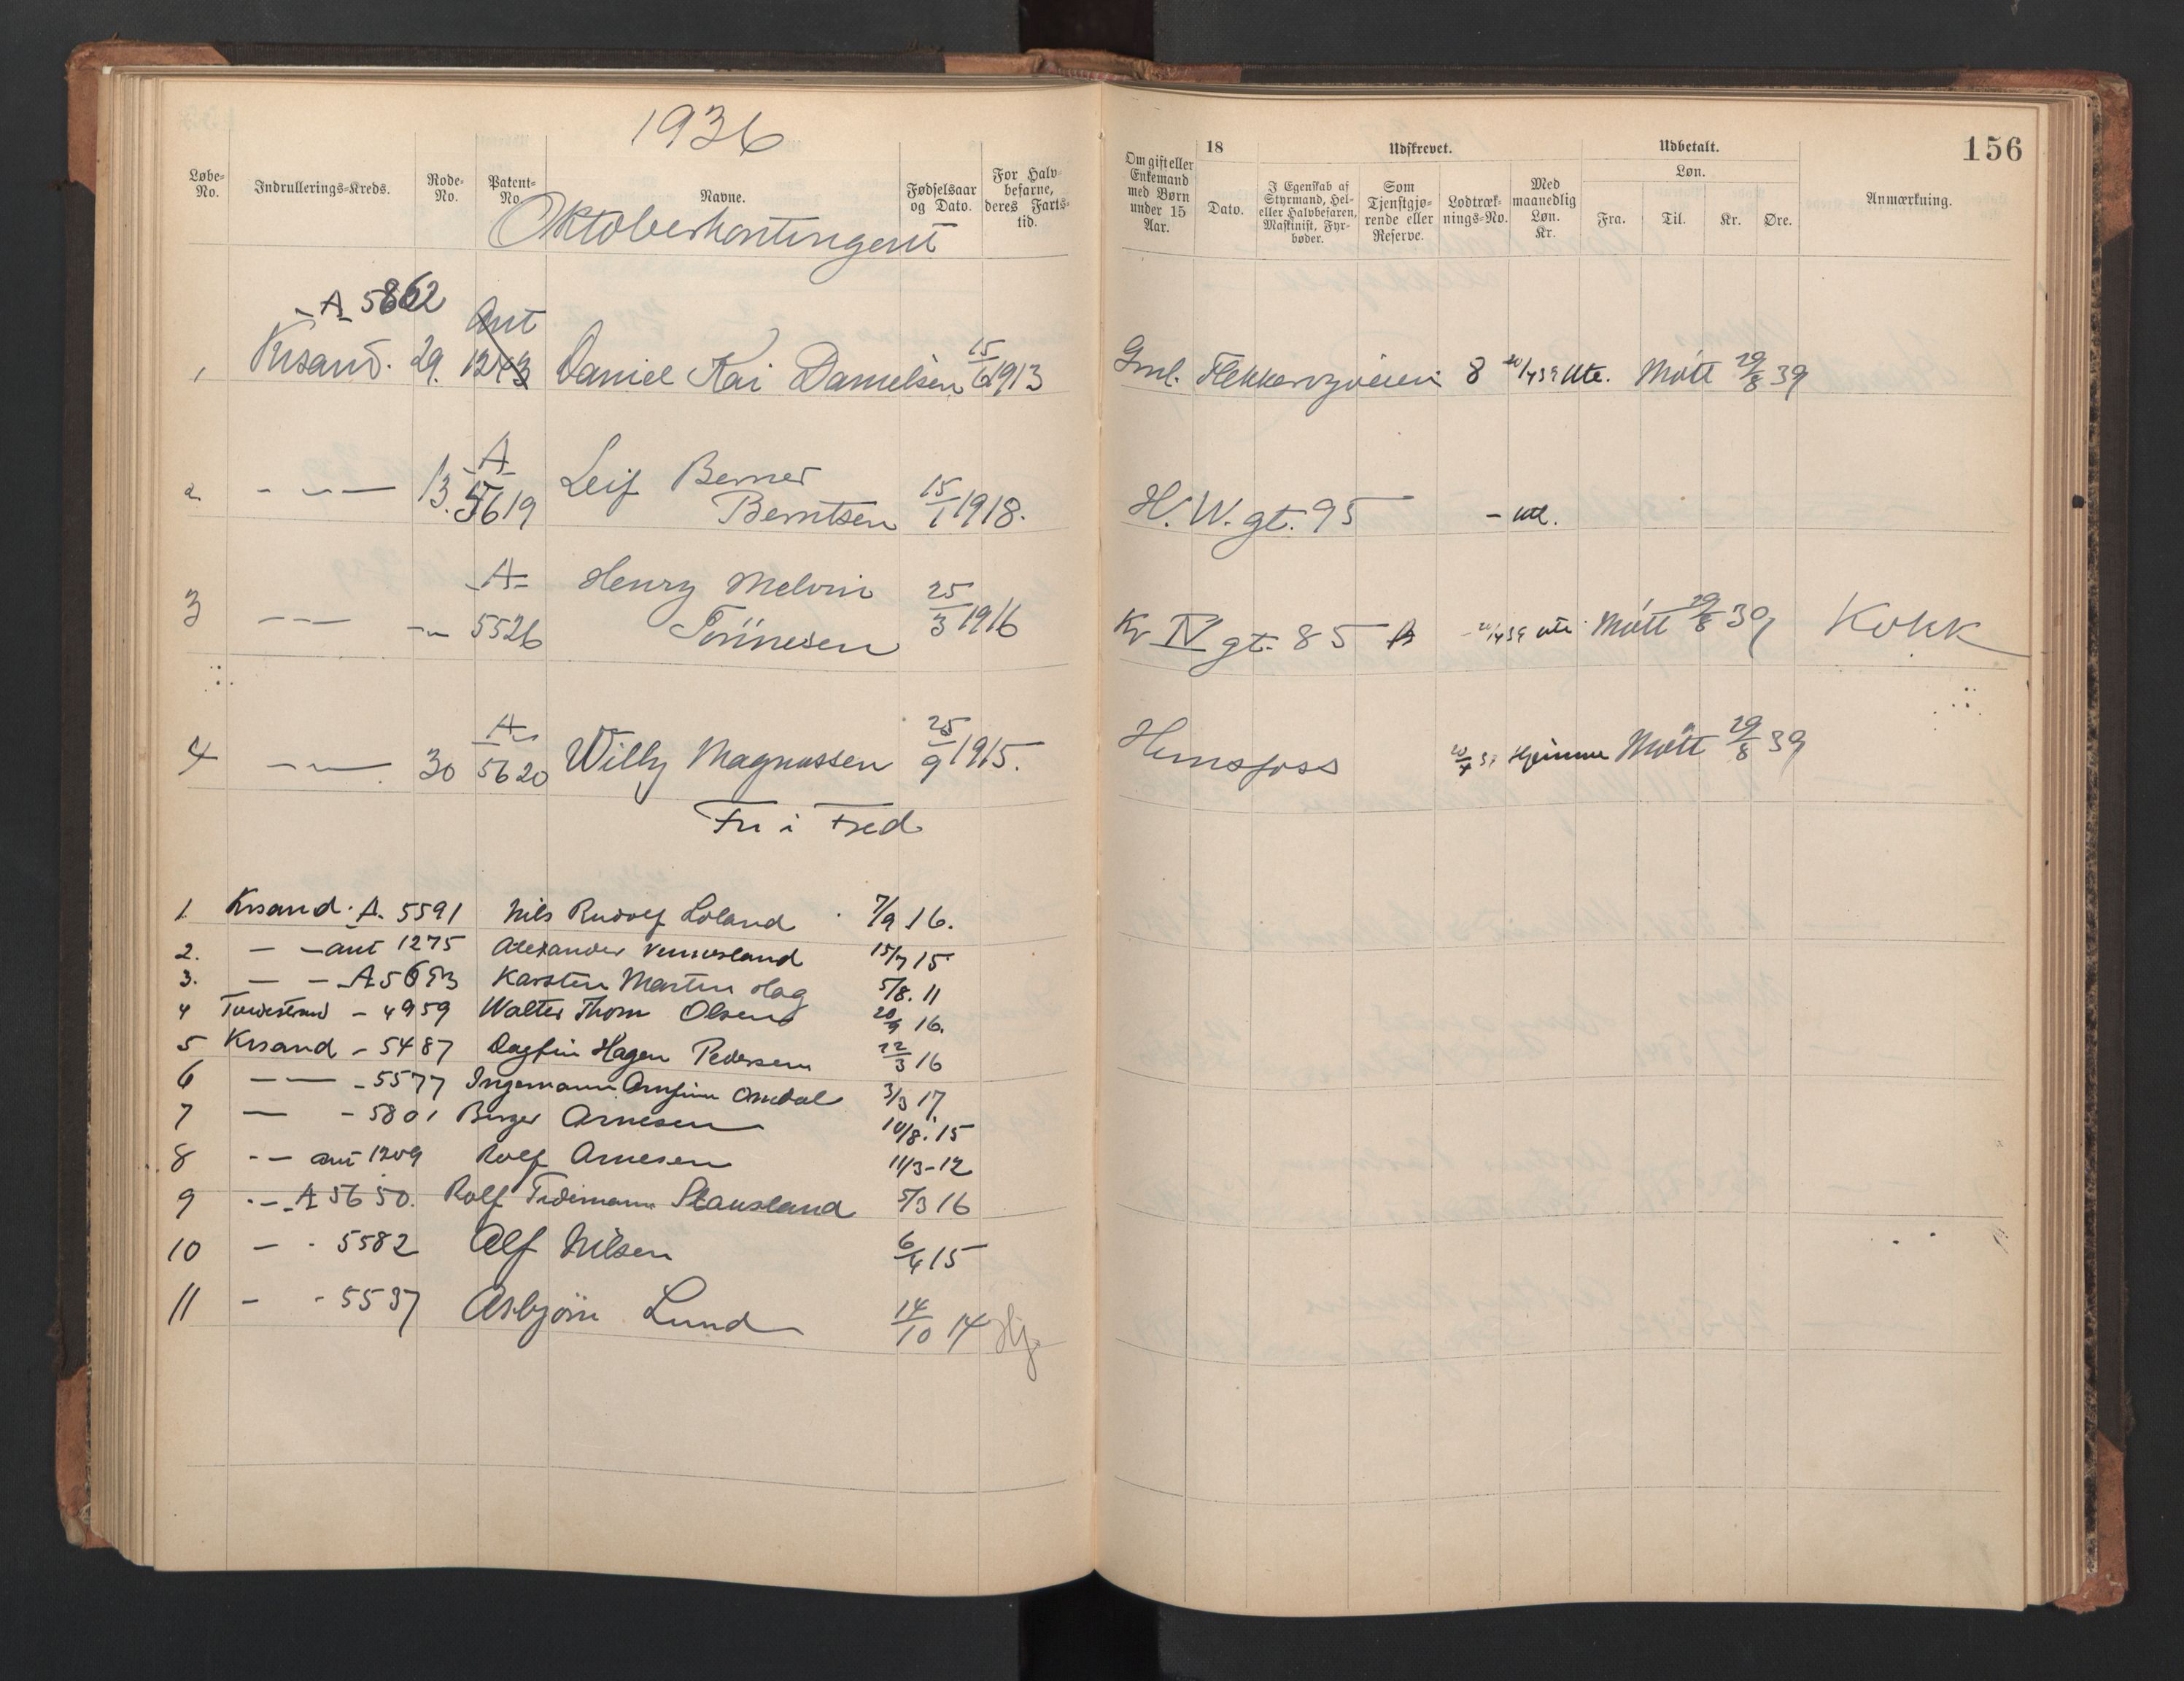 1936
156
Løbe-No. Indrullerings-Kreds. Rode-No. Patent-No. Navne. Fødselsaar og Dato. For Halvbefarne, deres Fartstid.
Om gift eller Enkemand med Børn under 15 Aar. 18 Dato. Udskrevet. I Egenskab af Styrmand, Hel- eller Halvbefaren, Maskinist, Fyrbøder. Som Tjenstgjørende eller Reserve. Lodtræknings-No. Med maanedlig Løn. Kr. Udbetalt. Løn. Fra. Til. Kr. Øre. Anmærkning.
Oktoberkontingent
A 5862
Ant
1 Krsand. 29. 1243 Daniel Kai Danielsen 15/6 1913 Gml. Flekkerøyveien 8 20/4 39 Ute. Møtt 29/8 39
A
2 - - - 13. 5619 Leif Berner
Berntsen 15/1 1918. H. W. gt. 95 - ute.
A
3 - - - - 5526 Henry Melvin
Tönnesen 25/3 1916 Kr IV gt. 85 A 20/4 39 ute Møtt 29/8 39 Kokk
A
4 - - - 30 5620 Willy Magnussen 25/9 1915. Hunsfoss 20/4 39 Hjemme Møtt 29/8 39
Fri i Fred
1 Krsand. A. 5591 Nils Rudolf Loland 7/9 16.
2. - - ant 1275 Alexander Vennesland 15/7 15
3. - - A 5693 Karsten Martin Hag 5/8. 11
4 Tvedestrand - 4959 Walter Thom Olsen 20/9 16.
5 Krsand - 5487 Dagfin Hagen Pedersen 22/3 16
6 - - - 5577 Ingemann Arnfinn Omdal 3/3 17
7 - - 5801 Birger Arnesen 10/8. 15
8 - - ant 1209 Rolf Arnesen 11/3-12
9 - - A 5650. Rolf Tidemann Stausland 5/3 16
10 - - 5582 Alf Nilsen 6/4 15
11 - - 5537 Asbjörn Lund 14/10 14 Hj.